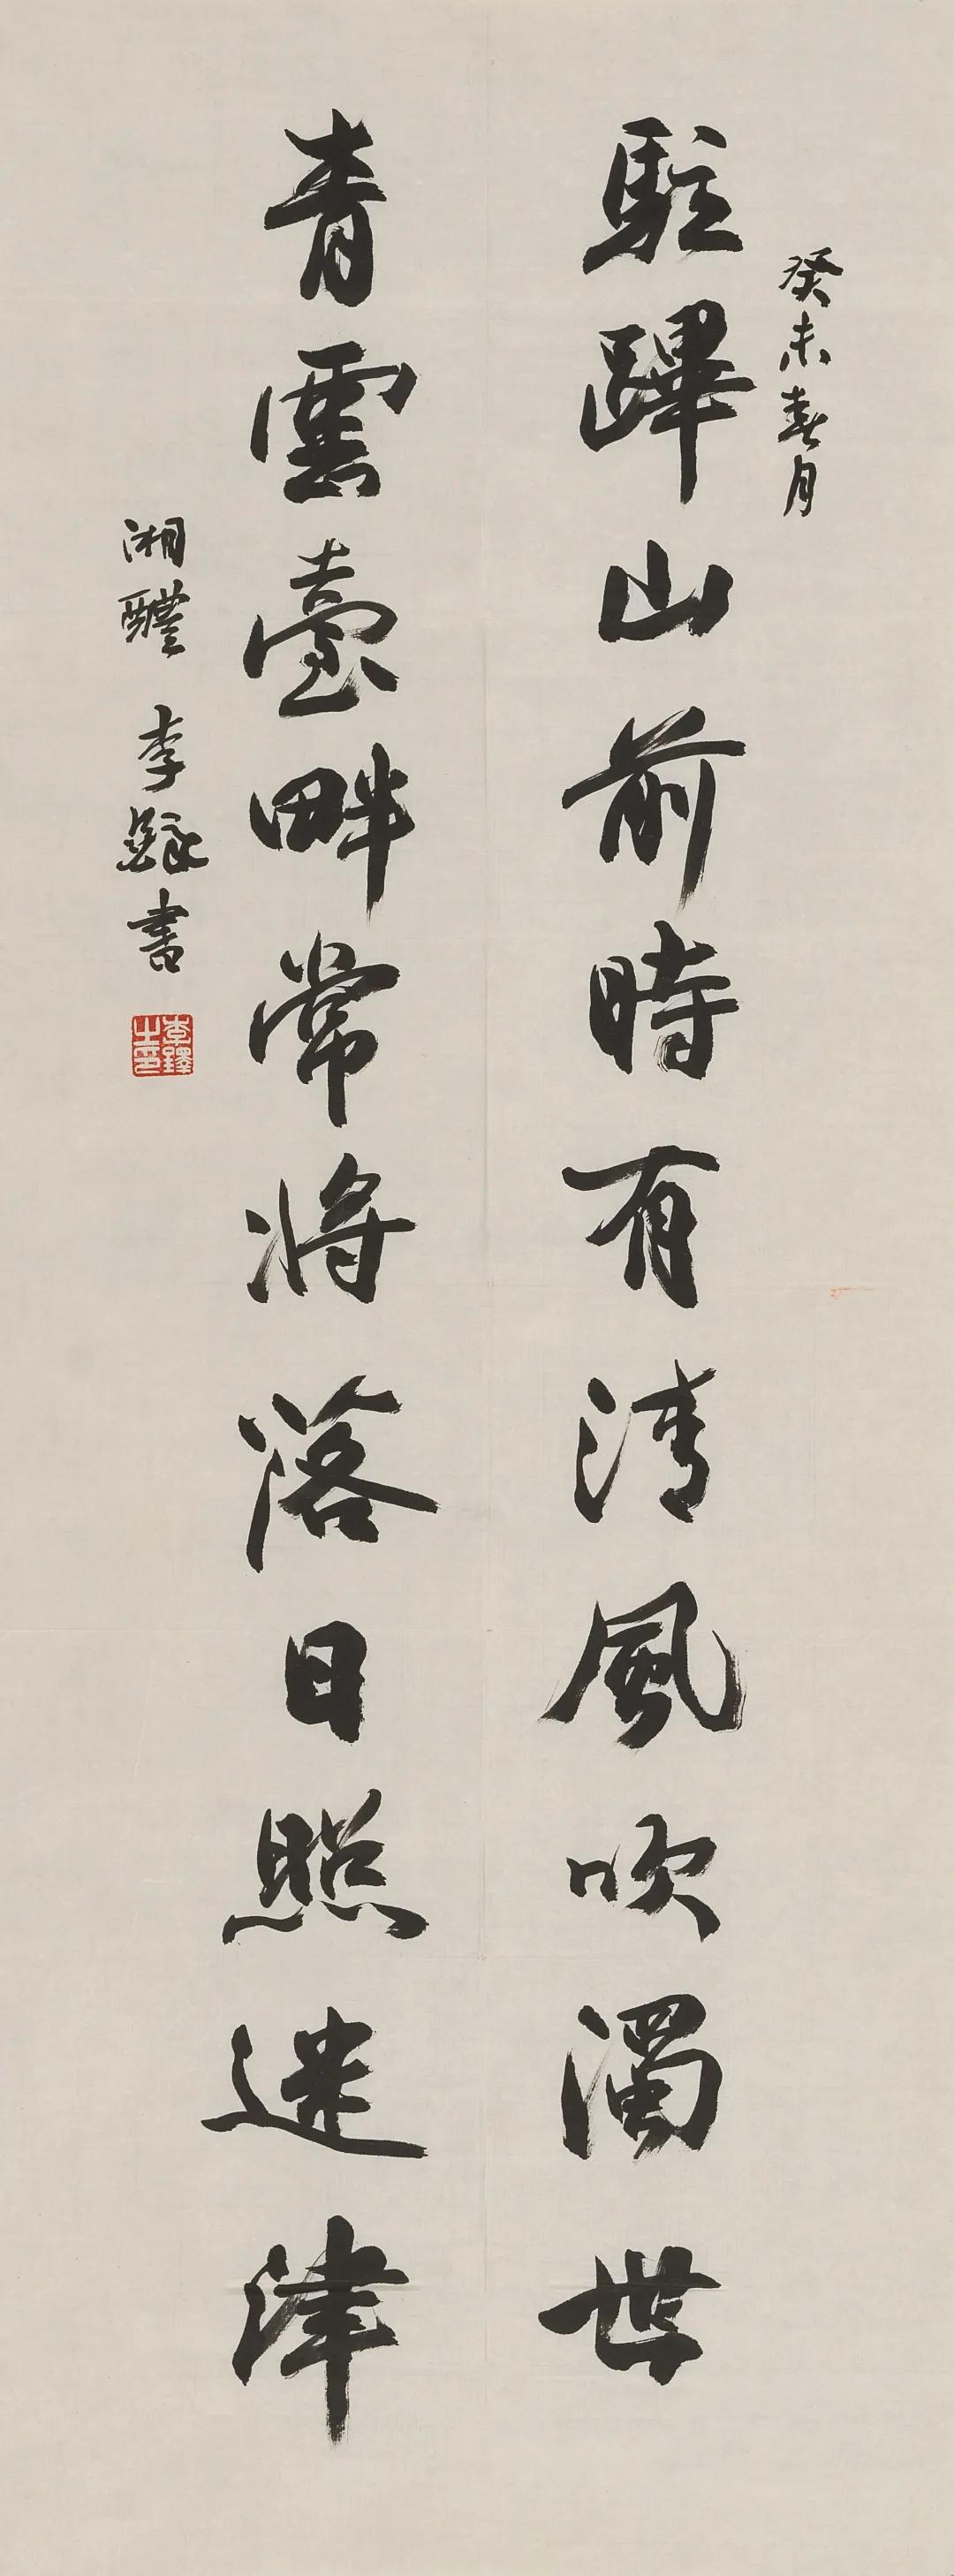 癸未春月
駐蹕山前時有清風吹濁世
青雲臺畔常將落日照迷津
湘醴 李鐸書
李鐸之印